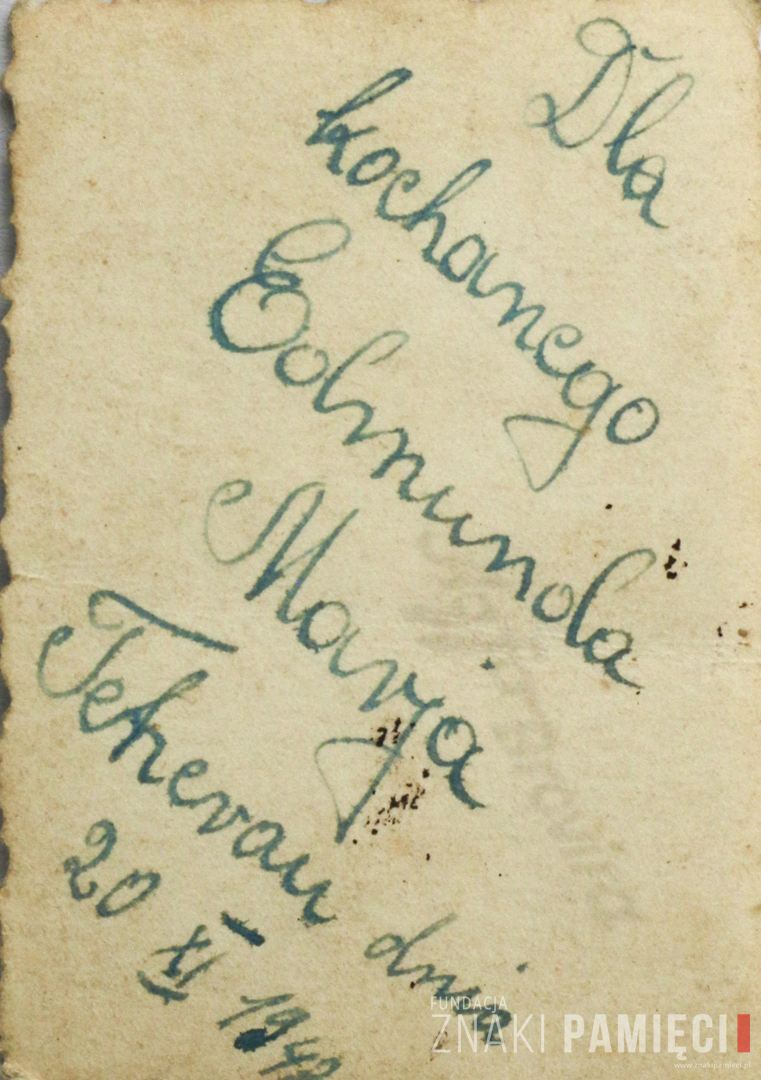 Dla
kochanego
Edmunda
Marja
Teheran dnia
20 XI 1942
FUNDACJA
ZNAKI PAMIĘCI
www.znakipamieci.pl